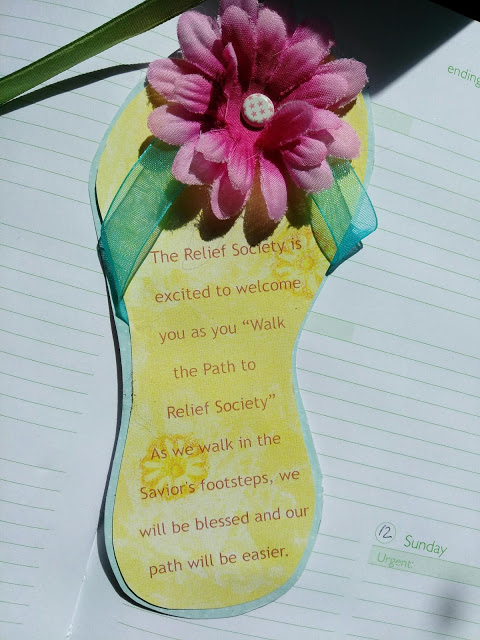 ending
The Relief Society is
excited to welcome
you as you “Walk
the Path to
Relief Society”
As we walk in the
Savior's footsteps, we
will be blessed and our
path will be easier.
12 Sunday
Urgent: